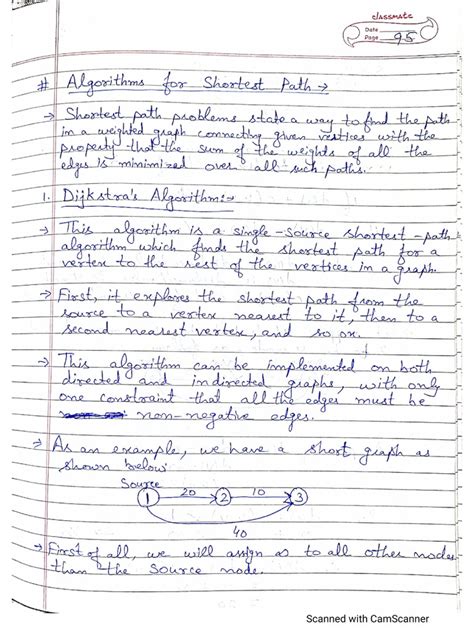 classmate
Date
Page 95
# Algorithms for Shortest Path →
→ Shortest path problems state a way to find the path
in a weighted graph connecting given vertices with the
property that the sum of the weights of all the
edges is minimized over all such paths.
1. Dijkstra's Algorithm:→
→ This algorithm is a single-source shortest-path
algorithm which finds the shortest path for a
vertex to the rest of the vertices in a graph.
→ First, it explores the shortest path from the
source to a vertex nearest to it, then to a
second nearest vertex, and so on.
→ This algorithm can be implemented on both
directed and indirected graphs, with only
one constraint that all the edges must be
non-negative edges.
→ As an example, we have a short graph as
shown below
Source
1 20 2 10 3
40
→ First of all, we will assign ∞ to all other nodes
than the source node.
Scanned with CamScanner